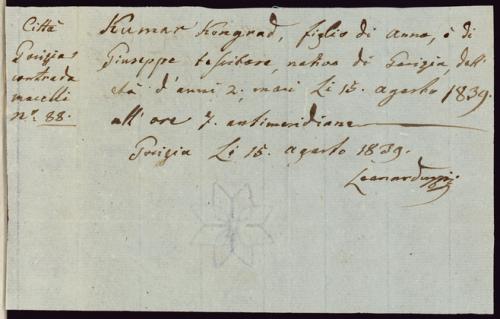 Città
Gorizia
contrada
macelli
n.º 88.
Kumar Kongrad, figlio di Anna, e di
Giuseppe tessitore, nativo di Gorizia, dell'
età d'anni 2, morì li 15. agosto 1839.
all'ore 7. antimeridiane
Gorizia li 15. agosto 1839.
Leonarduzzi